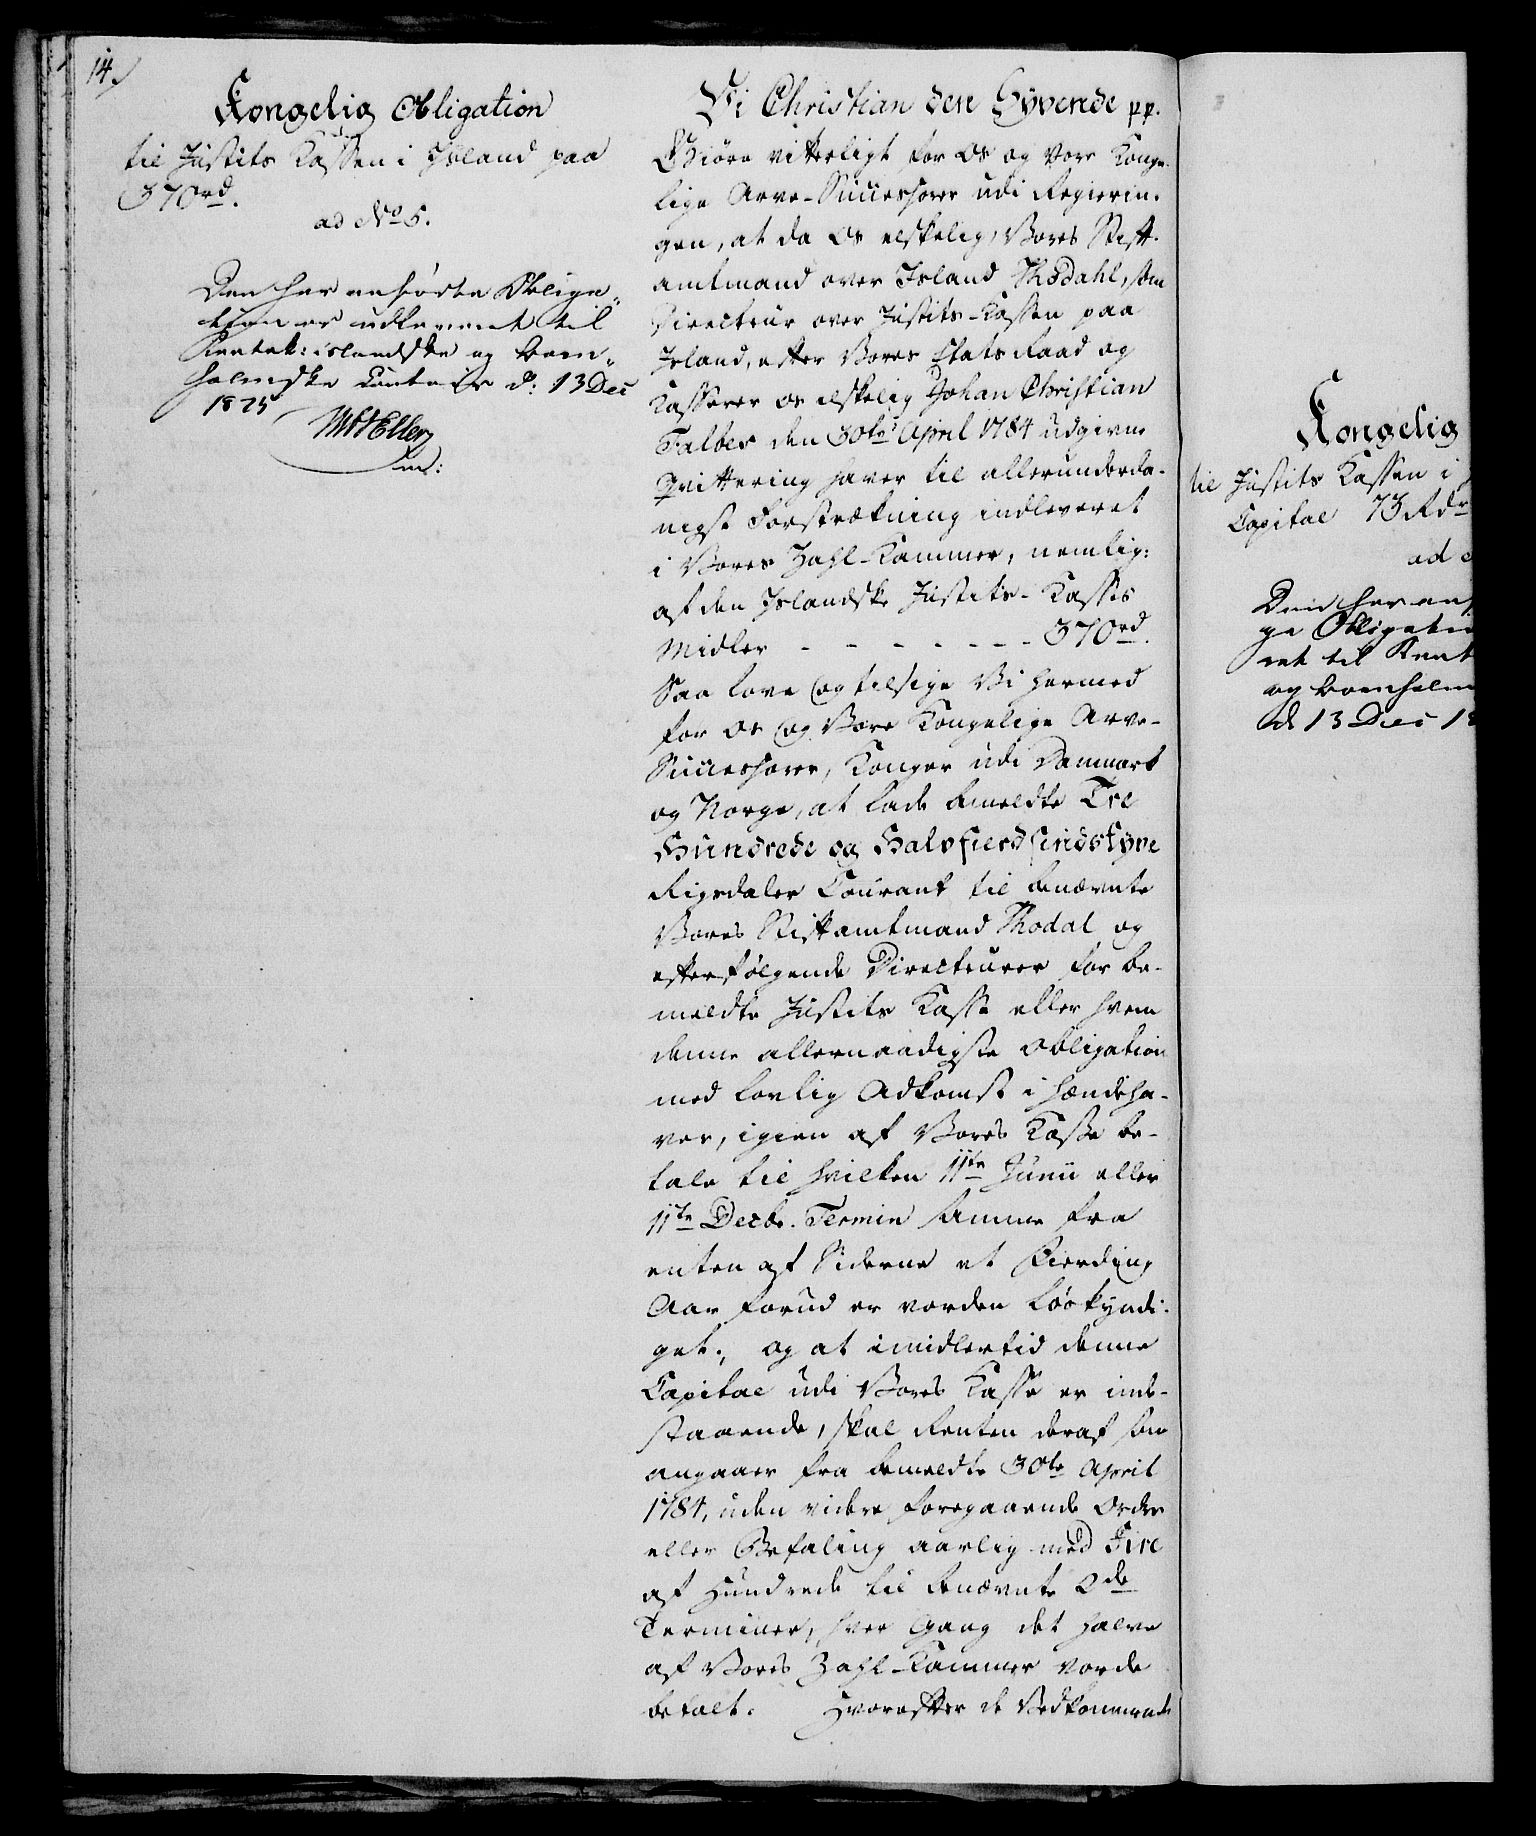 14.
Kongelig Obligation
til Justits Kassen i Island paa
370rd.
ad No 5.
Den her anførte Obliga-
tion er udleveret til
Rentek: islandske og born-
holmske Contoir d: 13 Dec
1825
Vi Christian den Syvende pp.
Giøre vitterligt for Os og Vore Konge-
lige Arve-Successorer udi Regierin-
gen, at da Os elskelig, Vores Stift-
amtmand over Island Thodahl, som
Directeur over Justits-Kassen paa
Island, efter Vores Etats Raad og
Kasserer Os elskelig Johan Christian
Falbes den 30te April 1784 udgivne
Qvittering haver til allerunderda-
nigst Forstrækning indleveret
i Vores Zahl-Kammer, nemlig:
af den Islandske Justits-Kasses
Midler - - - - - - - 370rd.
Saa love og tilsige Vi hermed
for Os og Vore Kongelige Arve-
Successorer, Konger udi Danmark
og Norge, at lade bemeldte Tre
Hundrede og Halvfierdsindstyve
Rigsdaler Courant til benævnte
Vores Stiftamtmand Thodal og
efterfølgende Directeurer for be-
meldte Justits Kasse eller hvem
denne allernaadigste Obligation
med lovlig Adkomst i hændeha-
ver, igien af Vores Kasse be-
tale til hvilken 11te Junii eller
11te Decbr. Termin samme fra
enten af Siderne et Fierding
Aar forud er vorden Løskyndi-
get., og at imidlertid denne
Capital udi Vores Kasse er inde-
staaende, skal Renten deraf som
angaaer fra bemeldte 30te April
1784, uden videre foregaaende Ordre
eller Befaling aarlig med Fire
af Hundrede til benævnte 2de
Terminer, hver Gang det halve
af Vores Zahl-Kammer vorde
betalt. Hvorefter de Vedkommende
Kongelig
til Justits Kassen i
Capital 73 Rdr
ad
Den her an
ge Obligation
ret til Rent
og bornholm
d 13 Dec 18